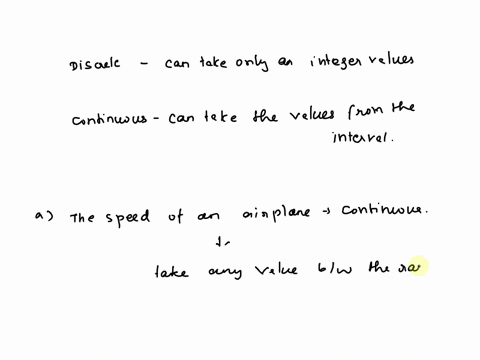 Discrete - can take only an integer values
Continuous - can take the values from the
interval.
a) The speed of an airplane → continuous.
↓
take any value b/w the ra